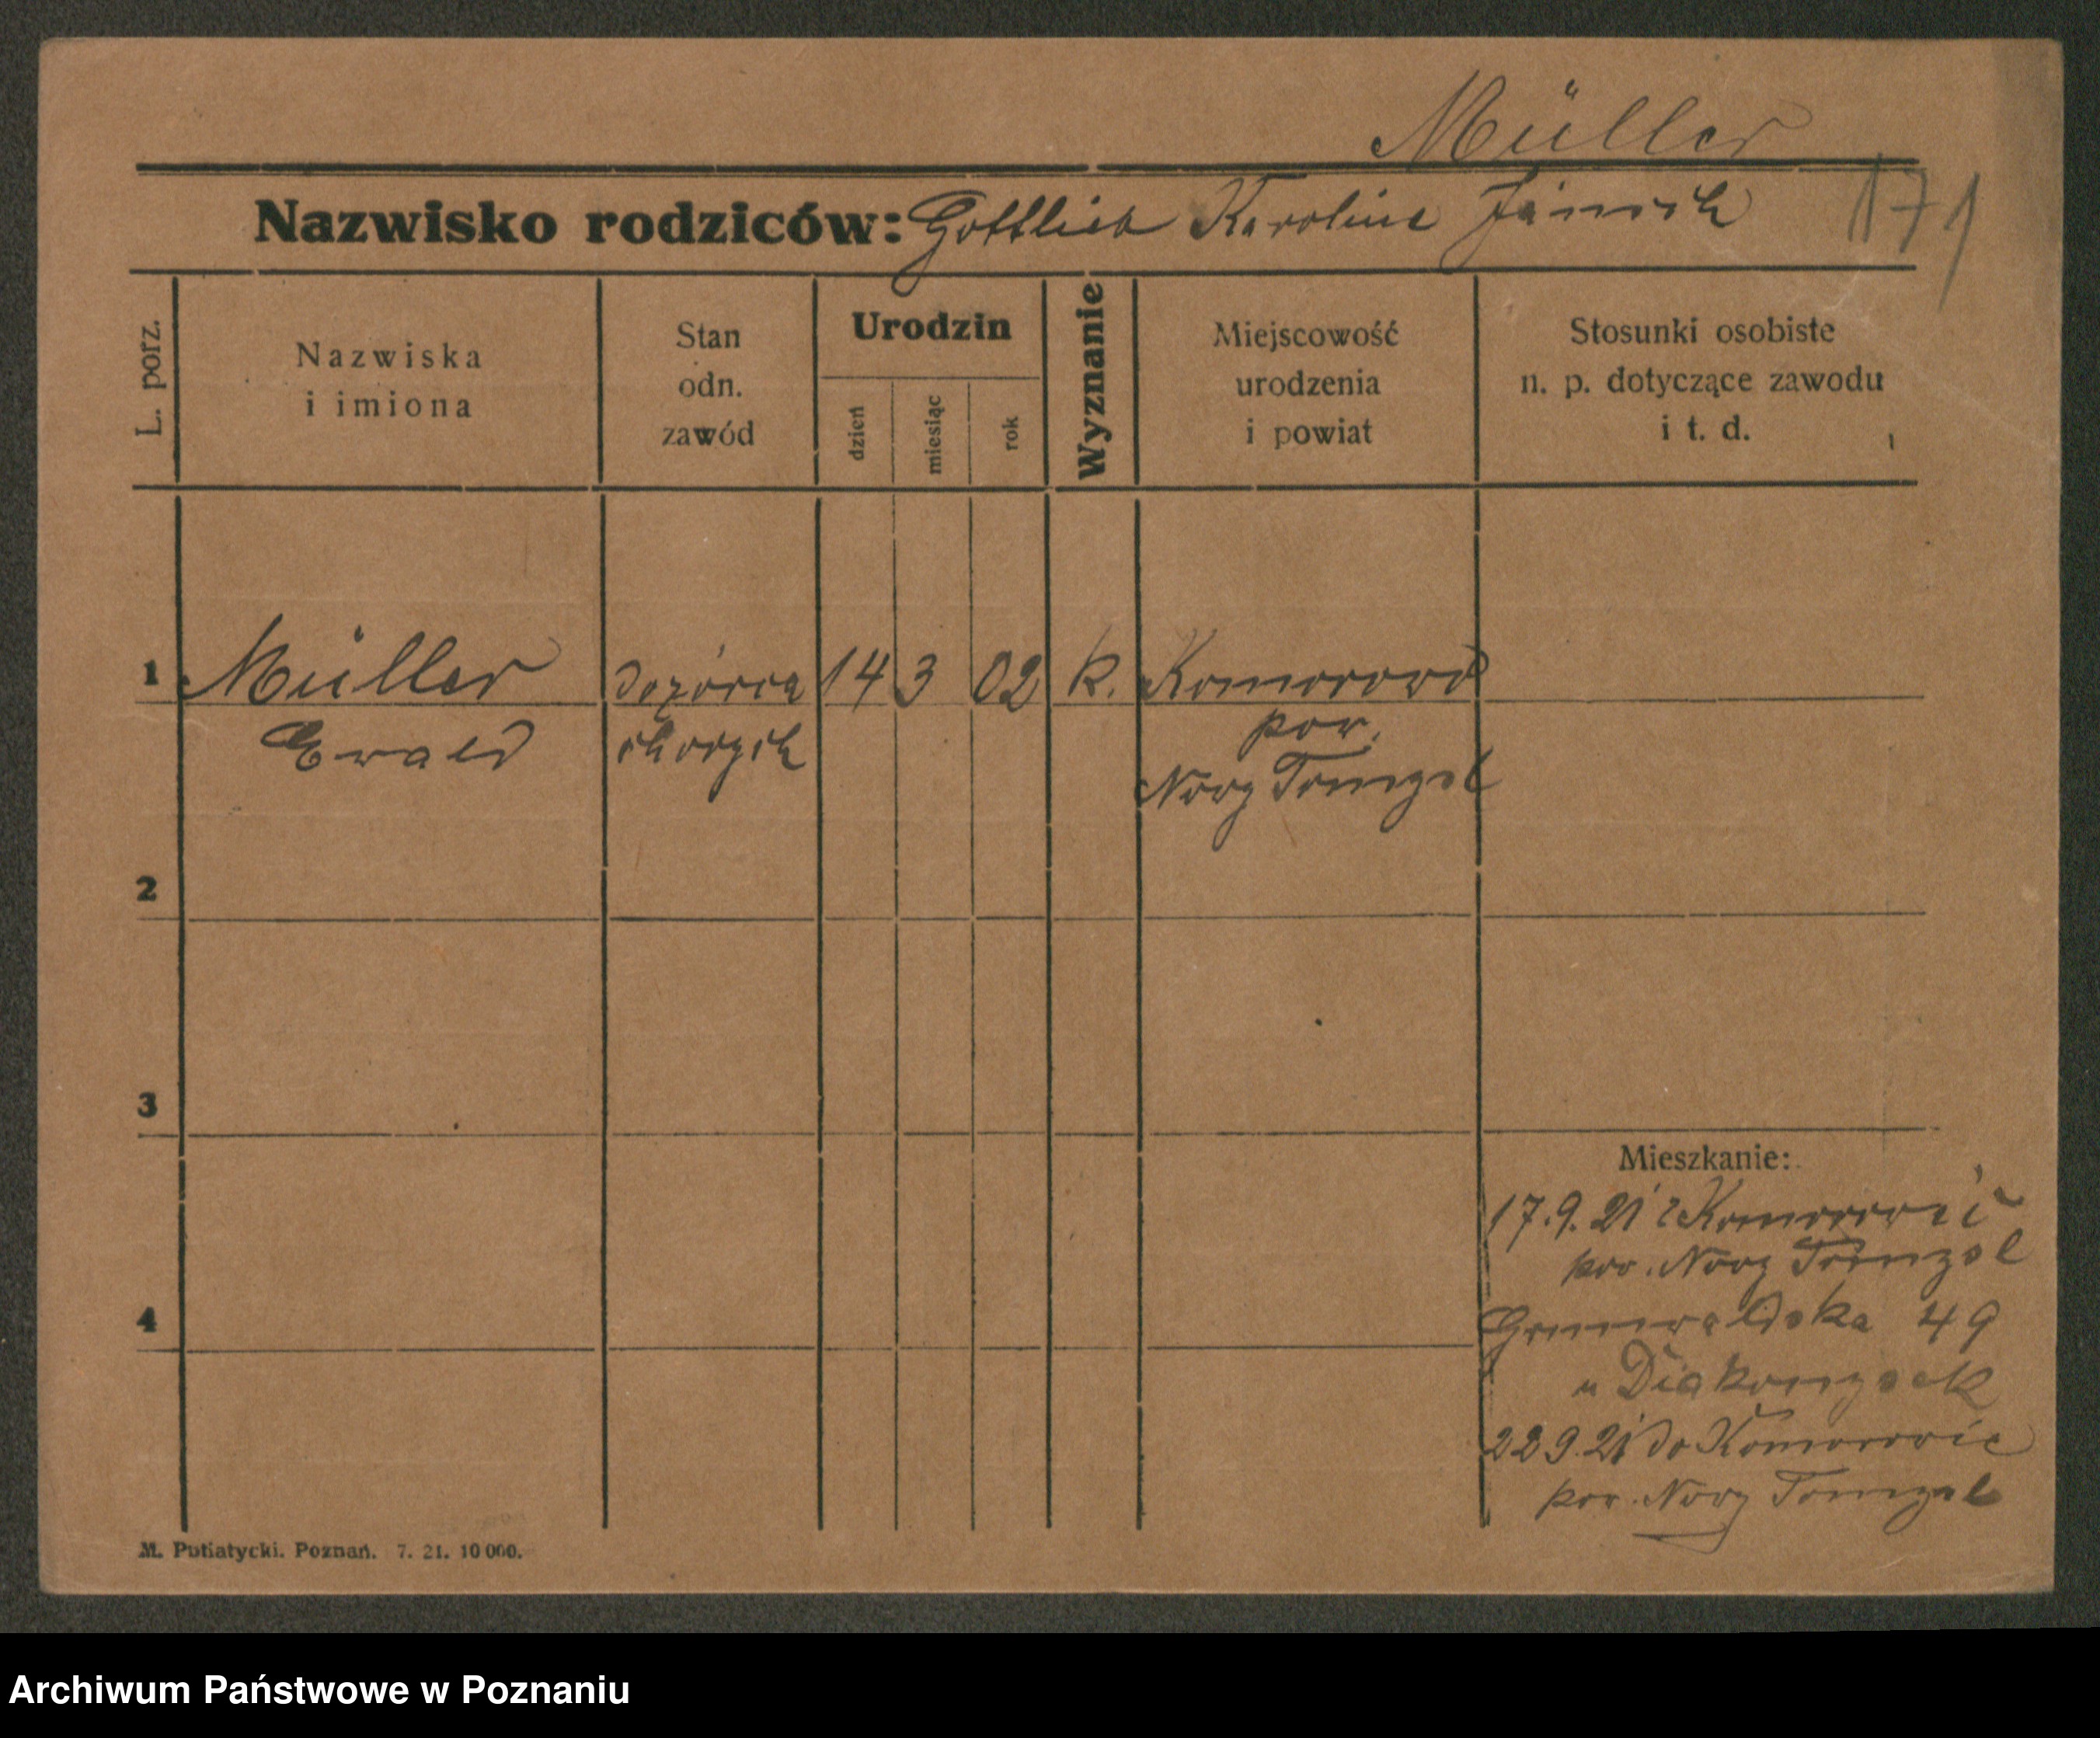 Müller
Nazwisko rodziców: Gottlieb Karoline Jänsch 171
L. porz.
Nazwiska
i imiona
Stan
odn.
zawód
Urodzin
dzień
miesiąc
rok
Wyznanie
Miejscowość
urodzenia
i powiat
Stosunki osobiste
n. p. dotyczące zawodu
i t. d.
1 Müller dozórca 14 3 02 k. Komorowo
Ewald chorych pow.
Nowy Tomyśl
2
3
Mieszkanie:
17.9.21 z Komorowic
pow. Nowy Tomyśl
4
Grunwaldska 49
u Diakonysek
22 9. 21 do Komorowic
pow. Nowy Tomyśl
M. Putiatycki. Poznań. 7. 21. 10 000.
Archiwum Państwowe w Poznaniu